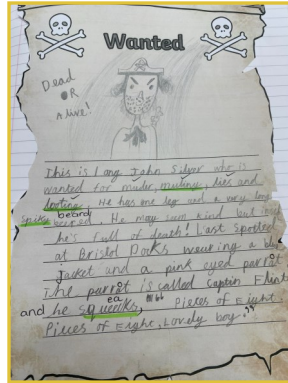 Wanted
Dead
OR
Alive!
This is Long John Silver who is
wanted for muder, mutiny, lies and
looting. He has one leg and a very long
Spiky beard. He may seem kind but
he's full of death! Last spotted
at Bristol Docks wearing a
Jacket and a pink eyed parrot
The parrot is called captin Flint
and he squeaks, Pieces of Eight,
Pieces of Eight, Lovely boy!"